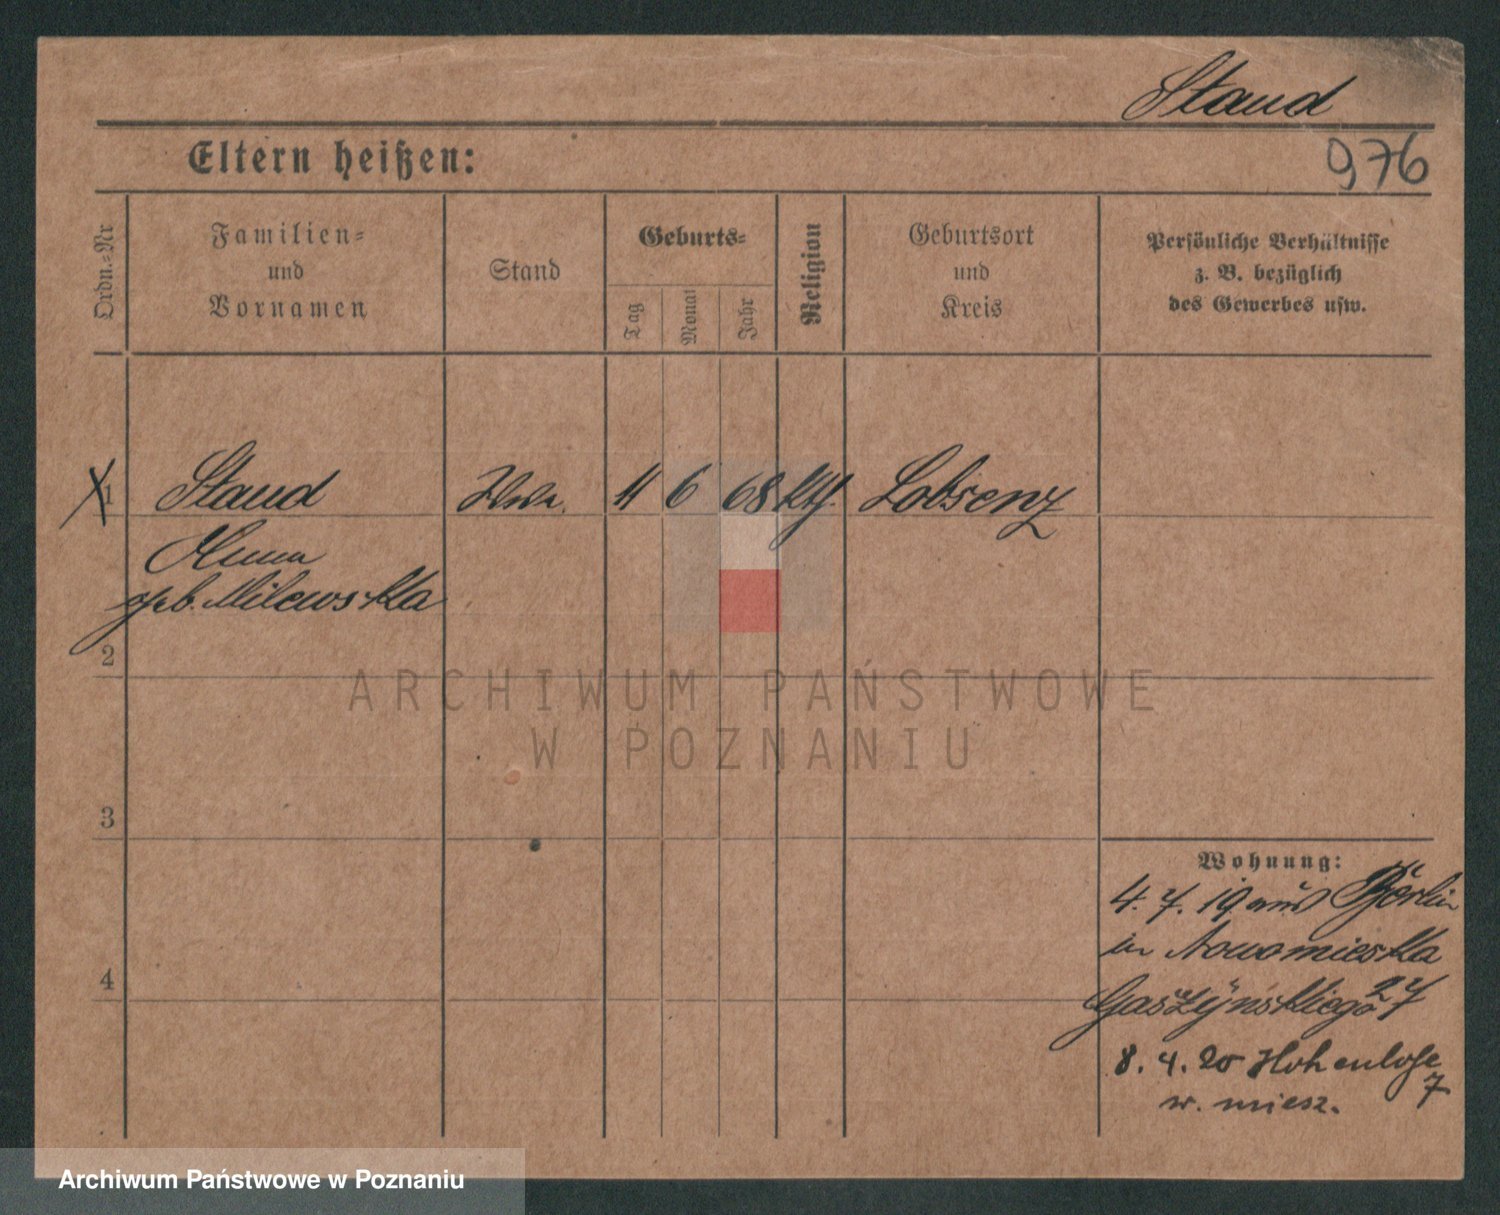 Staud
Eltern heißen:
976
Ordn.=Nr
Familien=
und
Vornamen
Stand
Geburts=
Tag
Monat
Jahr
Religion
Geburtsort
und
Kreis
Persönliche Verhältnisse
z. B. bezüglich
des Gewerbes usw.
1 Staud Wwe. 11 6 68 kth. Lobsenz
geb. Milewska
2
ARCHIWUM PAŃSTWOWE
W POZNANIU
3
Wohnung:
4. 7. 19 aus Berlin
in Nowomieska
4
27
8. 4. 20 Hohenlohe
7
w. miesz.
Archiwum Państwowe w Poznaniu